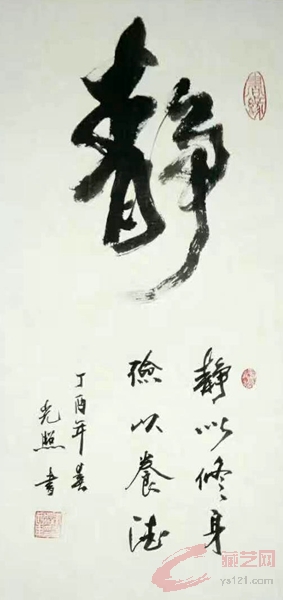 静
静以修身
俭以養德
丁酉年春
光照书
藏艺网
ys121.com